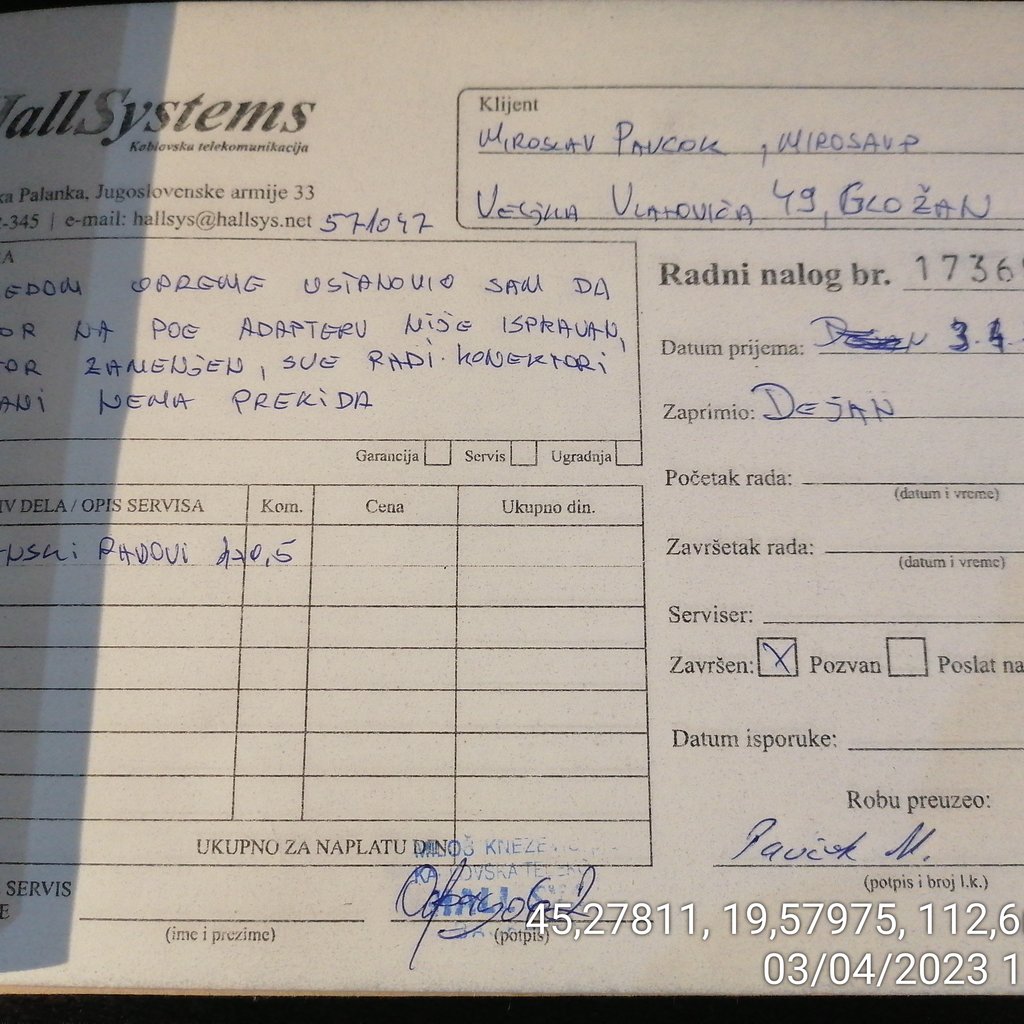 HallSystems
Kablovska telekomunikacija
ka Palanka, Jugoslovenske armije 33
2-345 | e-mail: hallsys@hallsys.net 571047
Klijent
MIROSLAV PAVČOK, MIROSAVP
VELJKA VLAHOVIĆA 49, GLOŽAN
A
EDOM OPREME USTANOVIO SAM DA
OR NA POE ADAPTERU NIJE ISPRAVAN,
TOR ZAMENJEN, SVE RADI. KONEKTORI
ANI NEMA PREKIDA
Garancija Servis Ugradnja
Radni nalog br. 1736
Datum prijema: 3.4.
Zaprimio: DEJAN
Početak rada:
(datum i vreme)
Završetak rada:
(datum i vreme)
Serviser:
Završen: X Pozvan Poslat na
Datum isporuke:
Robu preuzeo:
Pavčok M.
(potpis i broj l.k.)
IV DELA / OPIS SERVISA Kom. Cena Ukupno din.
NSKI RADOVI 0,5
UKUPNO ZA NAPLATU DIN
MILOŠ KNEZEVIĆ
SERVIS
E
(ime i prezime) (potpis)
45,27811, 19,57975, 112,6
03/04/2023 1